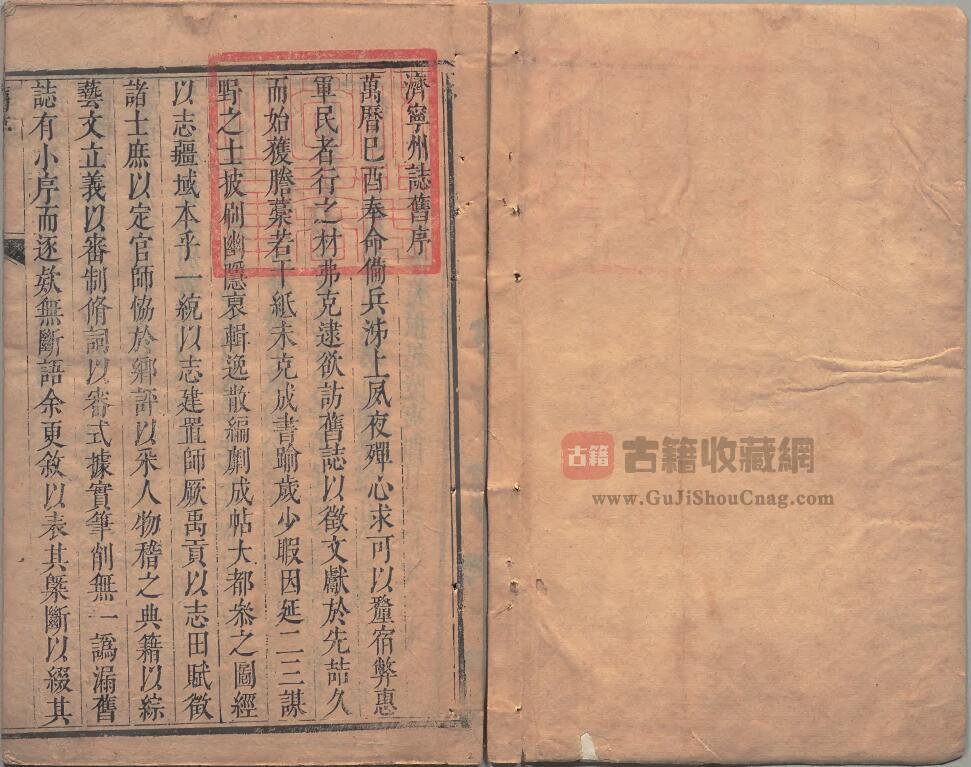 濟寧州誌舊序
萬曆巳酉奉命俻兵泲上夙夜殫心求可以釐宿弊惠
軍民者行之材弗克逮欲訪舊誌以徵文獻於先喆久
而始獲謄藁若干紙未克成書踰歲少暇因延二三謀
野之士披刷幽隱裒輯逸散編劘成帖大都叅之圖經
以志疆域本乎一統以志建置師厥禹貢以志田賦徵
諸士庶以定官師協於鄉評以采人物稽之典籍以綜
藝文立義以審制脩詞以審式據實筆削無一譌漏舊
誌有小序而逐欵無斷語余更敘以表其槩斷以綴其
古籍
古籍收藏網
www.GuJiShouCnag.com